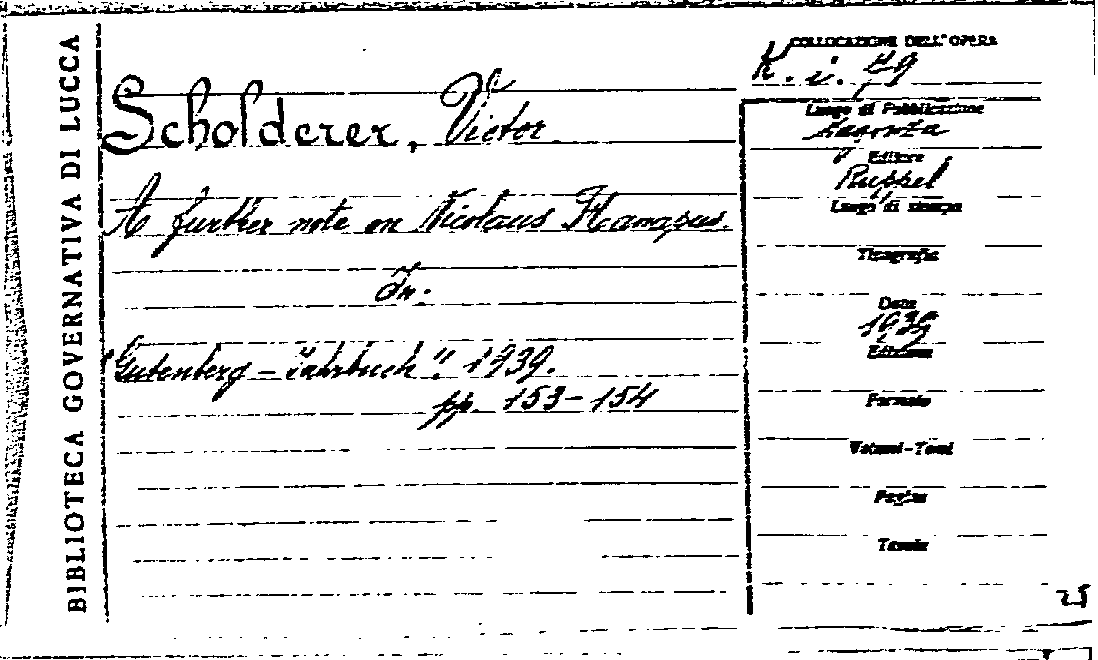 BIBLIOTECA GOVERNATIVA DI LUCCA
Scholderer, Victor
A further note on Nicolaus Hanapus.
In:
"Gutenberg-Jahrbuch". 1939.
pp. 153-154
COLLOCAZIONE DELL'OPERA
K. i. 79
Luogo di Pubblicazione
Magonza
Editore
Ruppel
Luogo di stampa
Tipografia
Data
1939
Edizione
Formato
Volumi-Tomi
Pagine
Tavole
25